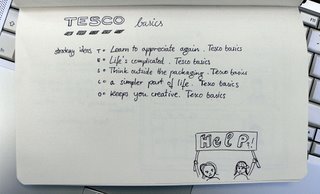 TESCO basics
strategy ideas T = Learn to appreciate again. Tesco basics
E = Life's complicated. Tesco basics
S = Think outside the packaging. Tesco basics
C = a simpler part of life. Tesco basics
O = Keeps you creative. Tesco basics
HelP!